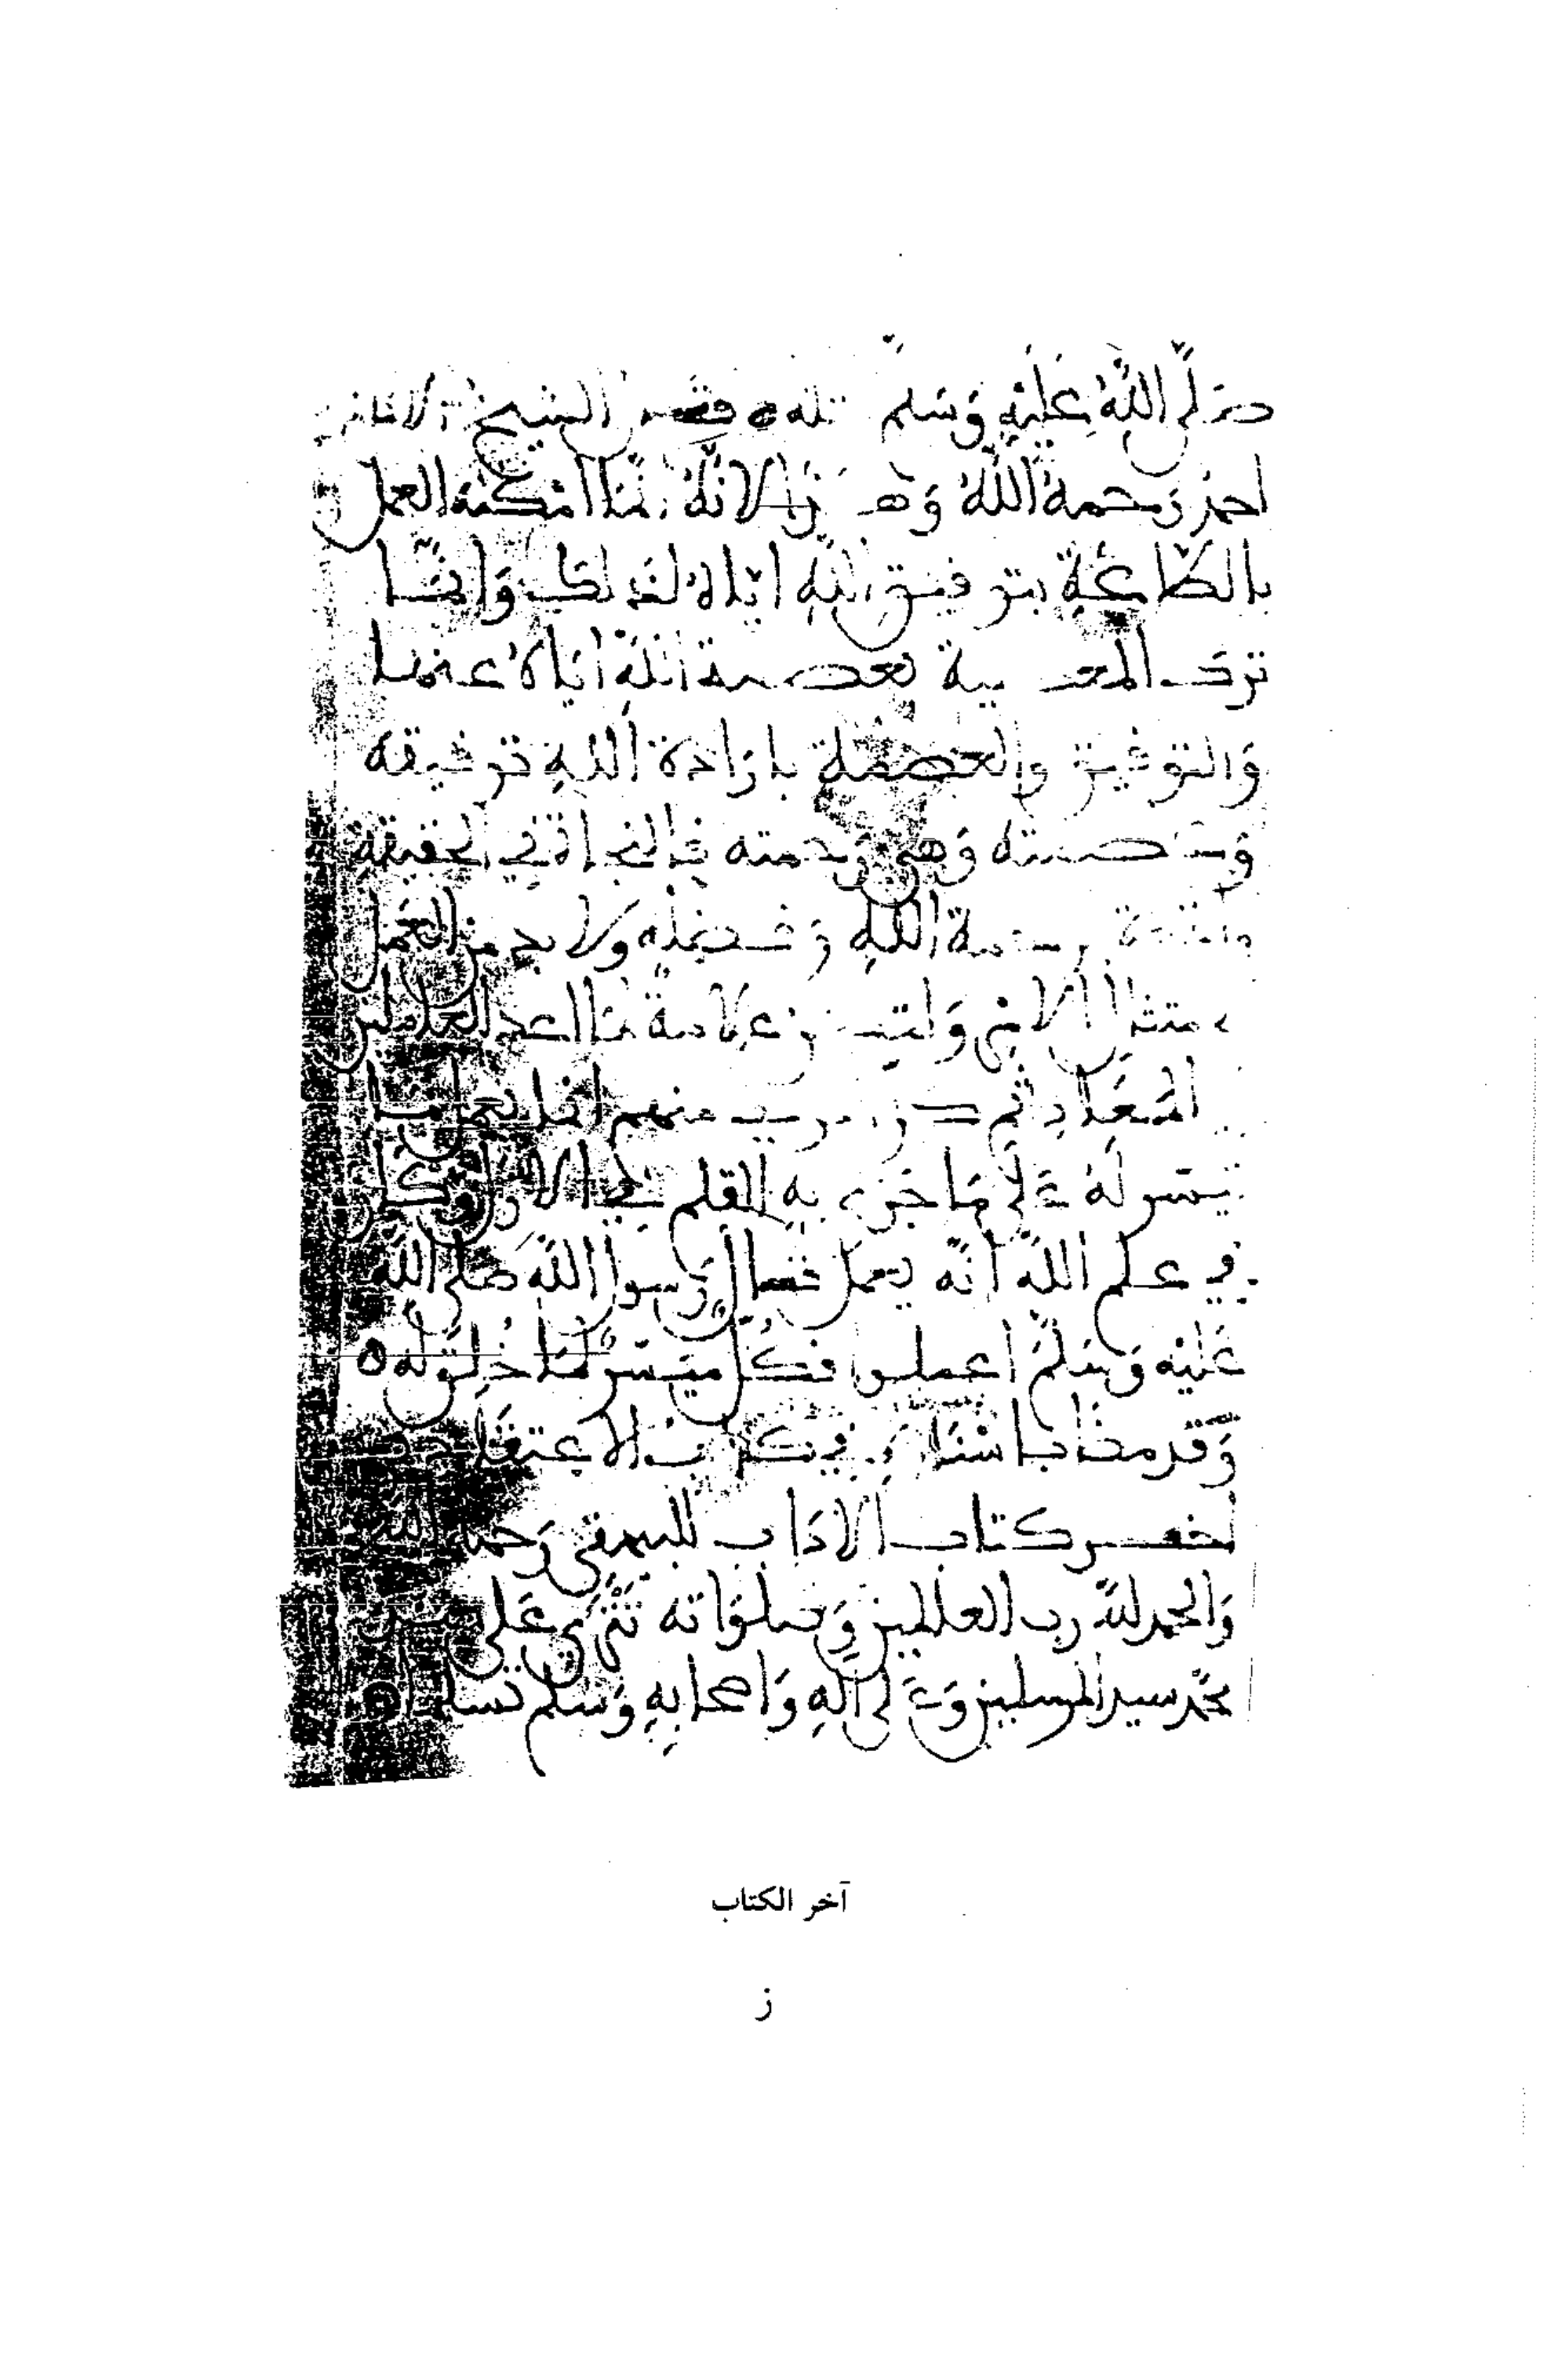 صَلَّى اللَّهُ عَلَيْهِ وَسَلم قال الشيخ الامام
احمد رَحمهُ اللَّهُ وَهذا لانَّهُ انما امْكنهُ العمل
بالطَّاعَةِ بتوفيق اللَّهِ ايَّاهُ لذلك وَانمَّا
ترك المعصية بعصمة اللَّهِ ايَّاهُ عنها
وَالتوفيق والعصمة بارَادة اللهِ توفيقه
وَعصمته وَهي رَحمته فالنجاة في الحقيقةِ
واقعة برحمة اللهِ وَفضله ولا بد من العَمل
لامتثال الامر وَليكون علامة لما اعد للعاملين
المعَادِ ثم كل منهم انما يعمل مَا
تيسر لَهُ عَلَى مَا جَرَى بهِ القلم في الاول وكان
في علم اللَّه انَّه يعمل فقال رَسول اللَّه صَلى اللَّه
عَليْه وَسَلمَ اعملوا فكُلٌّ ميَسّر لمَا خُلِقَ له ٥
وَقد مضَى باسْنَادِهِ في كتاب الاعتقَاد
اخر كتاب الادَاب للبيهقي رَحمه الله
وَالحمد للَّهِ رب العالمين وَصلوَاته تَتْرَى عَلى
محَمَّد سيد المرسلين وَعَلَى آلهِ وَاصحابهِ وَسَلم تسليما
آخر الكتاب
ز